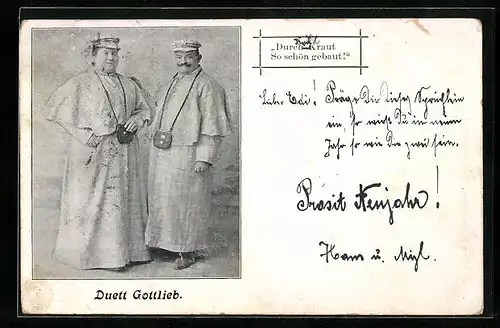 „Durch Kraut
So schön gebaut!“
Liebe Edi! Präge Dir dieses Sprüchlein
ein, so wirst Du im neuen
Jahr so wie Die zwei sein.
Prosit Neujahr!
Hans u. Mizl.
Duett Gottlieb.